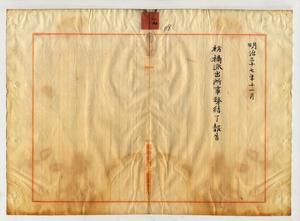 明治三十七年十一月
枋橋派出所事務結了報告